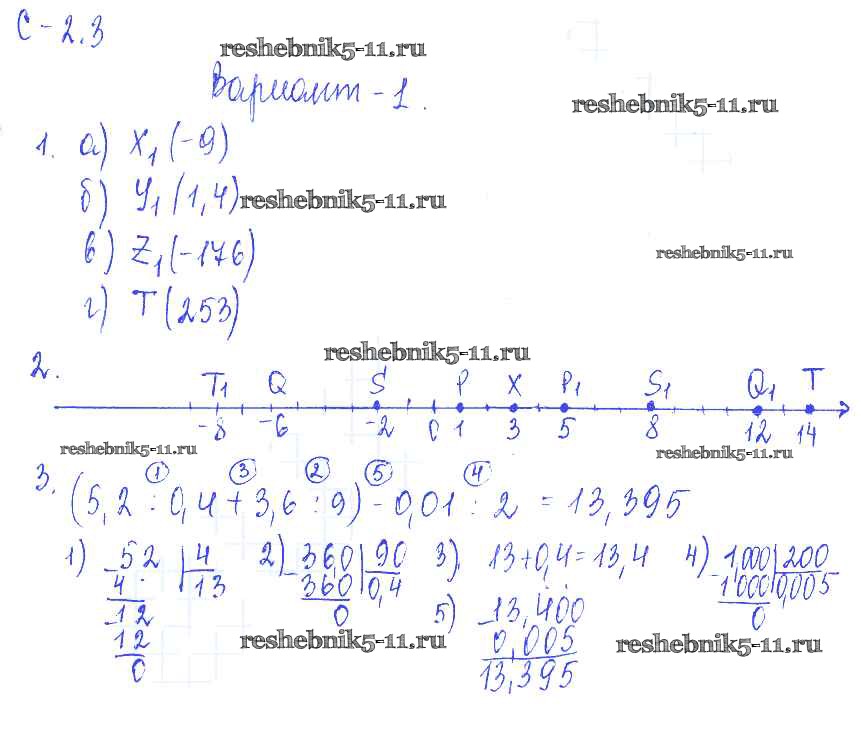 С-2.3
reshebnik5-11.ru
Вариант-1.
reshebnik5-11.ru
1. а) X₁(-9)
б) У₁(1,4)
reshebnik5-11.ru
в) Z₁(-176)
reshebnik5-11.ru
г) T(253)
reshebnik5-11.ru
2.
T₁ Q S P X P₁ S₁ Q₁ T
-8 -6 -2 0 1 3 5 8 12 14
reshebnik5-11.ru
reshebnik5-11.ru
① ③ ② ⑤ ④
3. (5,2 : 0,4 + 3,6 : 9) - 0,01 : 2 = 13,395
1) 52 | 4 2) 360 | 90 3) 13+0,4=13,4 4) 1,000 | 200
4 13 360 0,4 1000 0,005
12 0 5) 13,400 0
12 0,005
0 13,395
reshebnik5-11.ru
reshebnik5-11.ru